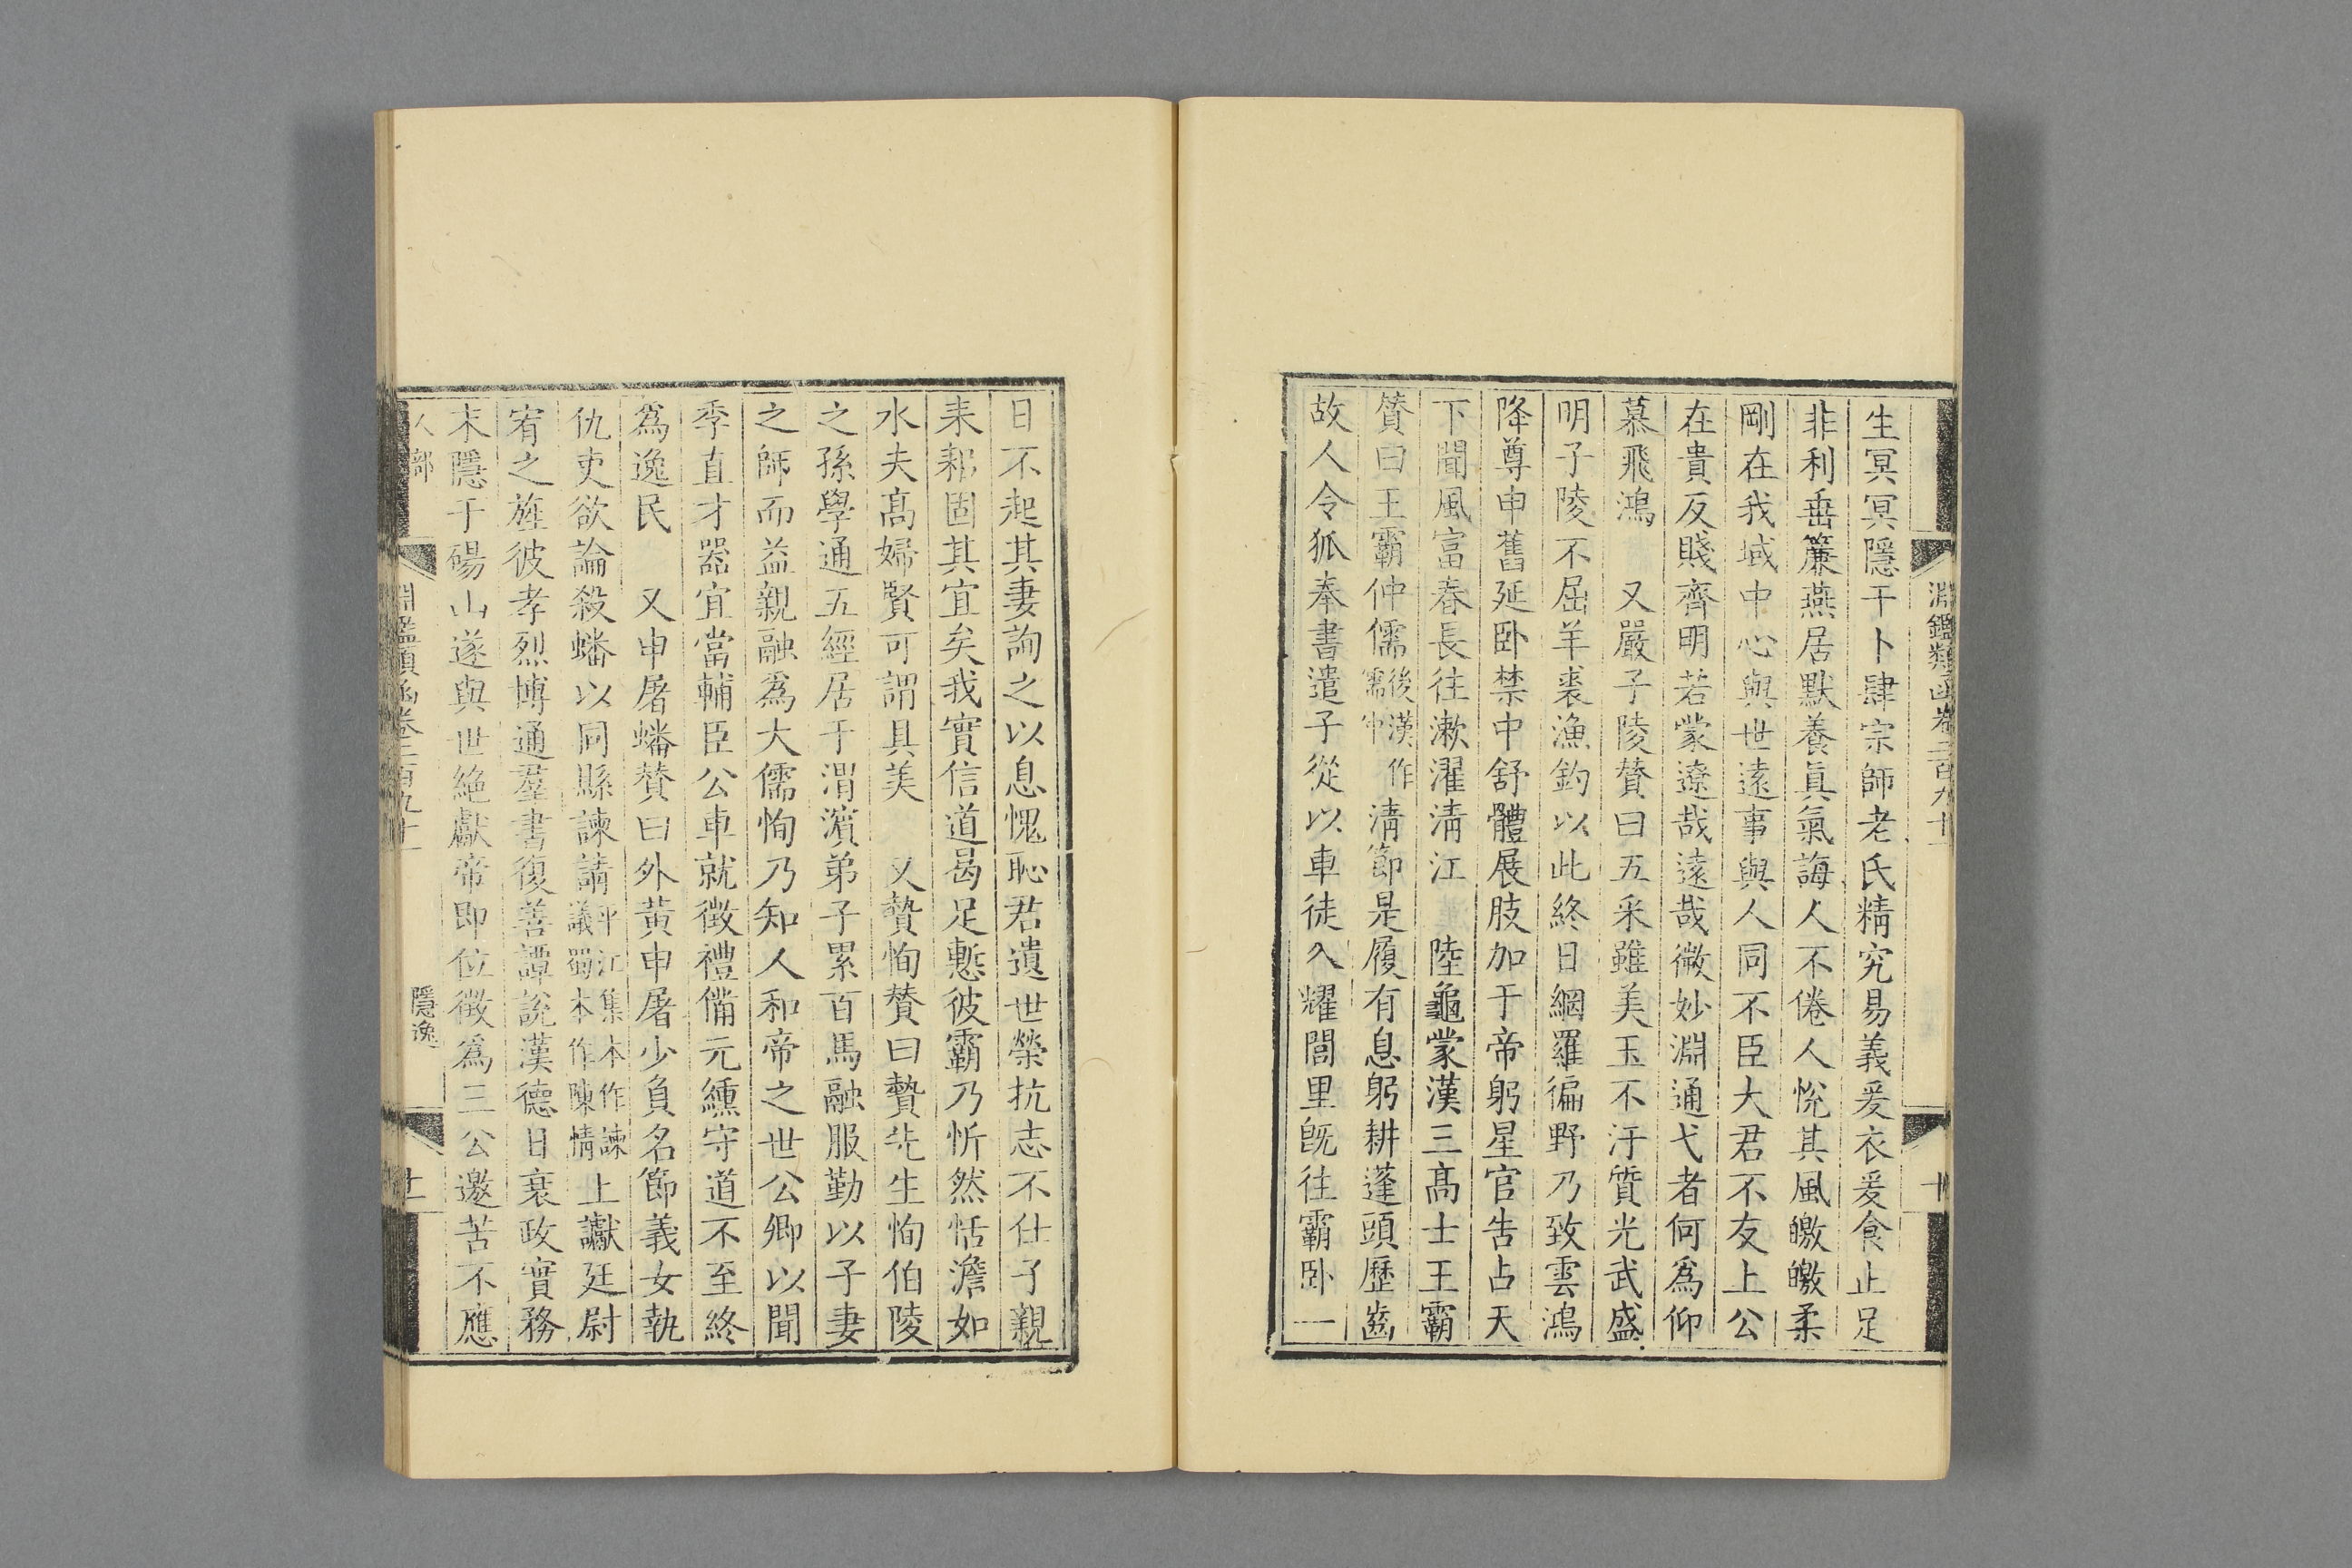 淵鑑類函卷二百九十一
十
生冥冥隱干卜肆宗師老氏精究易義爰衣爰食止足
非利垂簾燕居默養真氣誨人不倦人悅其風皦皦柔
剛在我域中心與世遠事與人同不臣大君不友上公
在貴反賤齊明若蒙遼哉遠哉微妙淵通弋者何爲仰
慕飛鴻　又嚴子陵贊曰五采雖美玉不汙質光武盛
明子陵不屈羊裘漁釣以此終日網羅徧野乃致雲鴻
降尊申舊延卧禁中舒體展肢加于帝躬星官告占天
下聞風富春長往漱濯清江　陸龜蒙漢三高士王霸
贊曰王霸仲儒後漢作儒中清節是履有息躬耕蓬頭歷齒
故人令狐奉書遣子從以車徒入耀閭里旣往霸卧一
日不起其妻詢之以息愧恥君遺世榮抗志不仕子親
耒耜固其宜矣我實信道曷足慙彼霸乃忻然恬澹如
水夫高婦賢可謂具美　又摯恂贊曰摯先生恂伯陵
之孫學通五經居于渭濵弟子累百馬融服勤以子妻
之師而益親融爲大儒恂乃知人和帝之世公卿以聞
季直才器宜當輔臣公車就徵禮備元纁守道不至終
爲逸民　又申屠蟠贊曰外黃申屠少負名節義女執
仇吏欲論殺蟠以同縣諫請平江集本作諫議蜀本作陳情上讞廷尉
宥之旌彼孝烈博通羣書復善譚說漢德日衰政實務
末隱于碭山遂與世絶獻帝即位徵爲三公邀苦不應
人部
淵鑑類函卷二百九十一
隱逸
十一